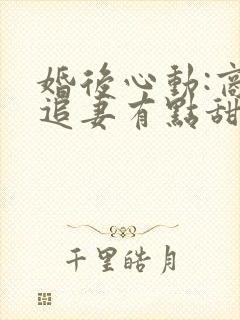 婚後心動:
追妻有點甜
千里皓月